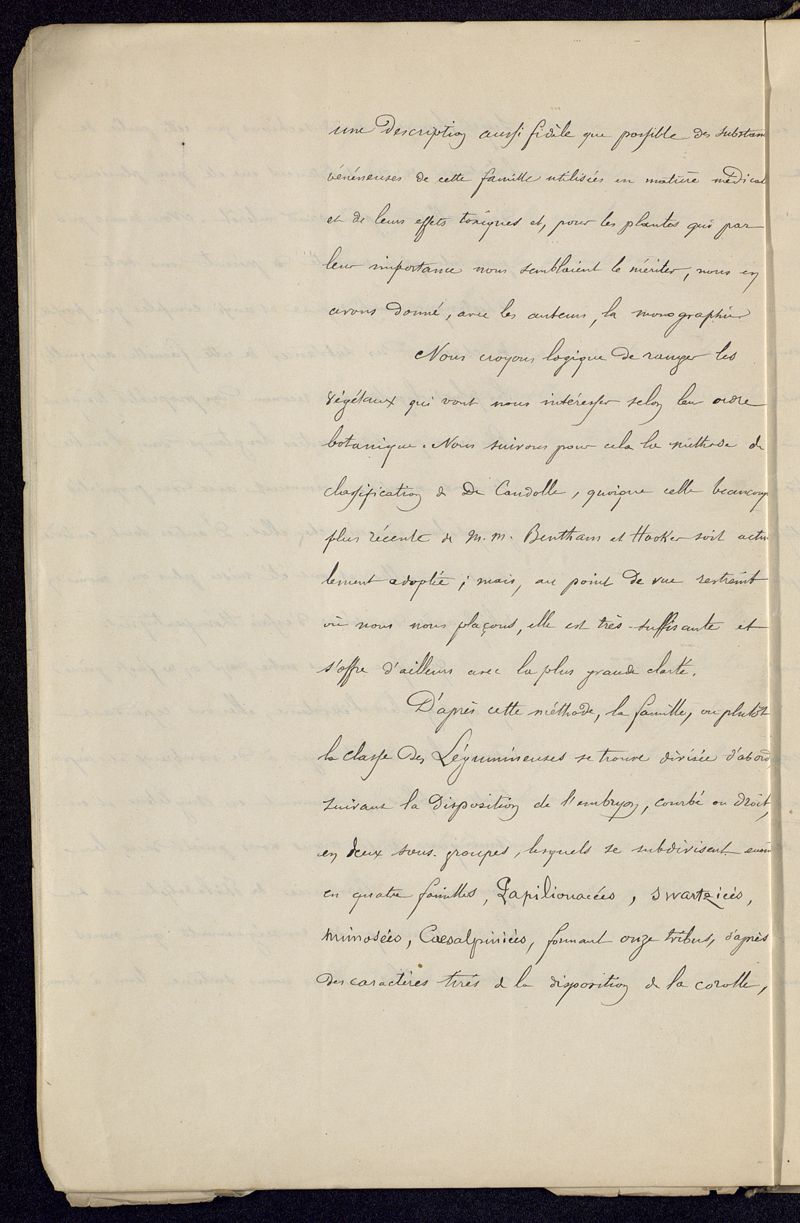 une description aussi fidèle que possible des substan
vénéneuses de cette famille utilisées en matière médical
et de leurs effets toxiques et, pour les plantes qui par
leur importance nous semblaient le mériter, nous en
avons donné, avec les auteurs, la monographie
Nous croyons logique de ranger les
végétaux qui vont nous intéresser selon leur ordre
botanique. Nous suivrons pour cela la méthode de
classification de De Candolle, quoique celle beaucoup
plus récente de M. M. Bentham et Hooker soit actu
lement adoptée ; mais, au point de vue restreint
où nous nous plaçons, elle est très-suffisante et
s'offre d'ailleurs avec la plus grande clarté.
D'après cette méthode, la famille, ou plutôt
la classe des Légumineuses se trouve divisée d'abord
suivant la disposition de l'embryon, courbé ou droit,
en deux sous-groupes, lesquels se subdivisent
en quatre familles, Papilionacées, Swartziées,
Mimosées, Caesalpiniées, formant onze tribus, d'après
des caractères tirés de la disposition de la corolle,